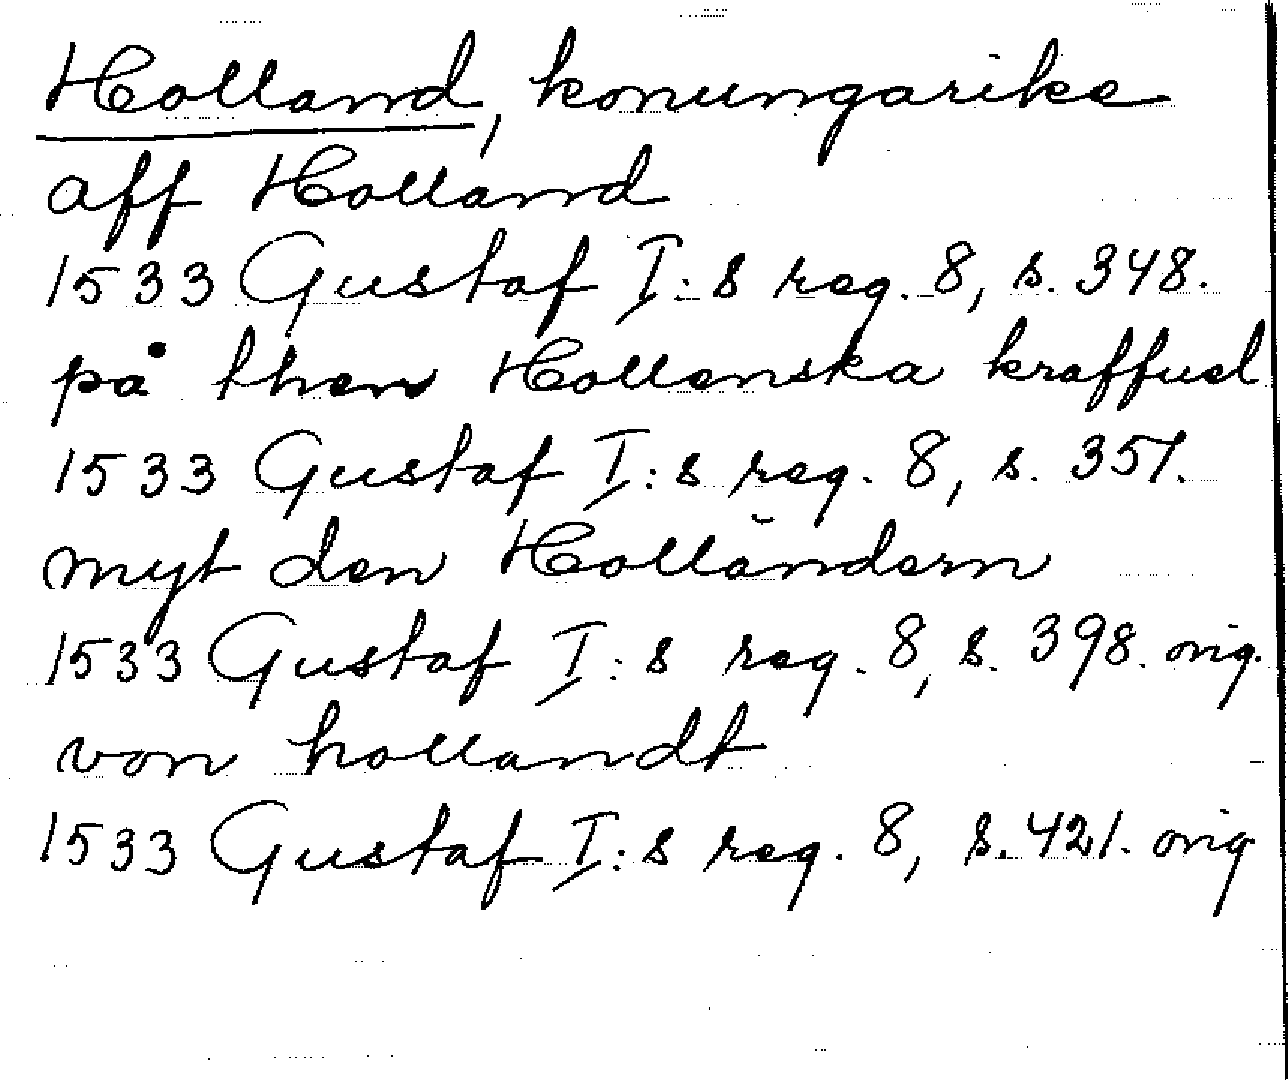 Holland, konungarike
aff Holland
1533 Gustaf I:s reg. 8, s. 348.
på then Hollenska kraffuel
1533 Gustaf I:s reg. 8, s. 351.
myt den Holländern
1533 Gustaf I:s reg. 8, s. 398. orig.
von hollandt
1533 Gustaf I:s reg. 8, s. 421. orig